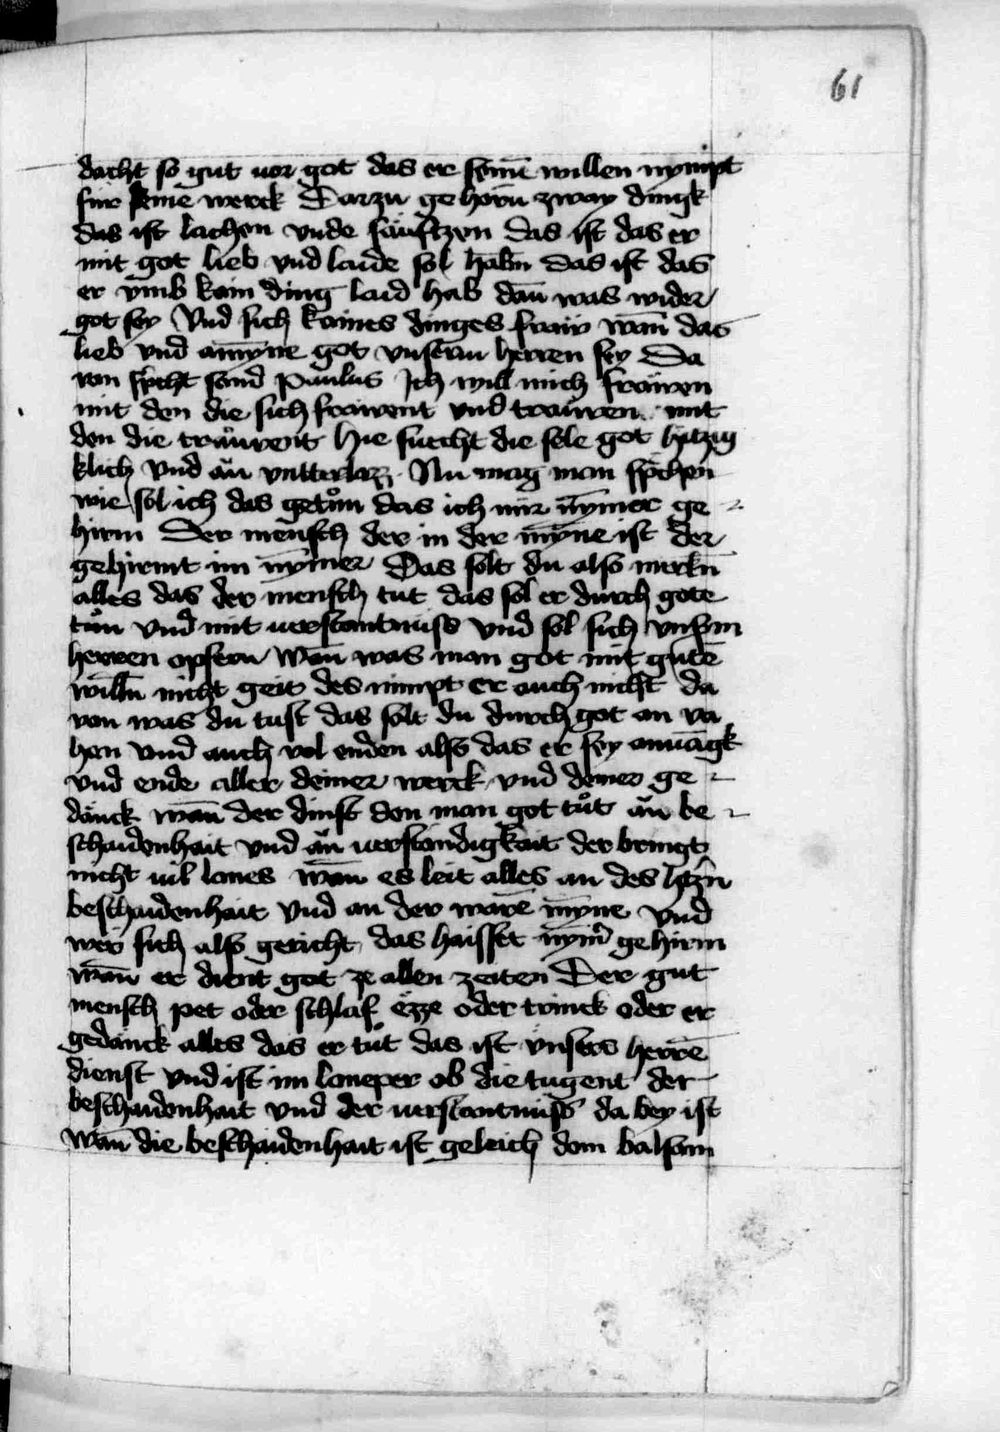 61
dacht so gut uor got das er seinē willen nympt
für seine werck Darzu gehörn̄ zway dingk
das ist lachen vnde säufftzen das ist das er
mit got lieb vnd laide sol habn̄ das ist das
er vmb kain ding laid hab dan̄ was wider
got sey Vnd sich kaines dinges fräw wan̄ das
lieb vnd amyne got vnserm herren sey Da
von spͬcht sand Paulus Ich will mich fräwen
mit den die sich fräwent vnd traůren mit
den die traůrent Hie suecht die sele got hitzig
klich vnd ăn vntterlazz. Nu mag man spͬchen
wie sol ich das getůn das ich mir nym̄er ge-
hirm Der mensch der in der myn̄e ist der
gehirmt im nym̄er Das solt du also merkn̄
alles das der mensch tut das sol er durch gote
tůn vnd mit uerstantnuss vnd sol sich vnserm
herren opfern Wan̄ was man got mit gutē
willn̄ nicht geit des nimpt er auch nicht da
von was du tust das solt du durch got an va
hen vnd auch vol enden also das er sey anuāgk
vnd ende aller deiner werck vnd deiner ge-
dänck wan̄ der dinst den man got tůt ăn be-
schaidenhait vnd ăn uerstandigkait der bringt
nicht uil lones wan̄ es leit alles an des hͬtzn̄
beschaidenhait vnd an der warē myn̄e vnd
wer sich also gericht das haisset nym̄ͬ gehirm
wan̄ er dient got ze allen zeiten Der gut
mensch pet oder schlaf ëzze oder trinck oder er
gedänck alles das er tůt das ist vnsers herrē
dienst vnd ist im loneper ob die tugent der
beschaidenhait vnd der uerstantnuss da bey ist
Wan̄ die beschaidenhait ist geleich dem balsam